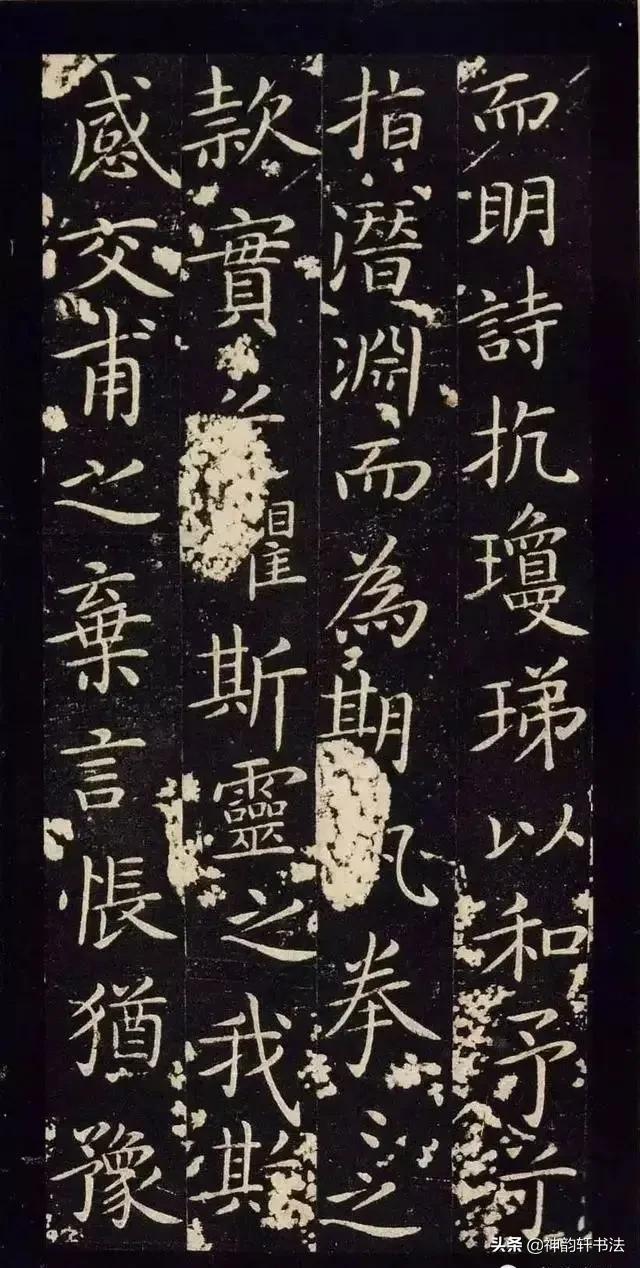 而明詩抗瓊珶以和予兮
指潛淵而為期拳〻之
款實兮懼斯靈之我欺
感交甫之棄言悵猶豫
头条 @神韵轩书法